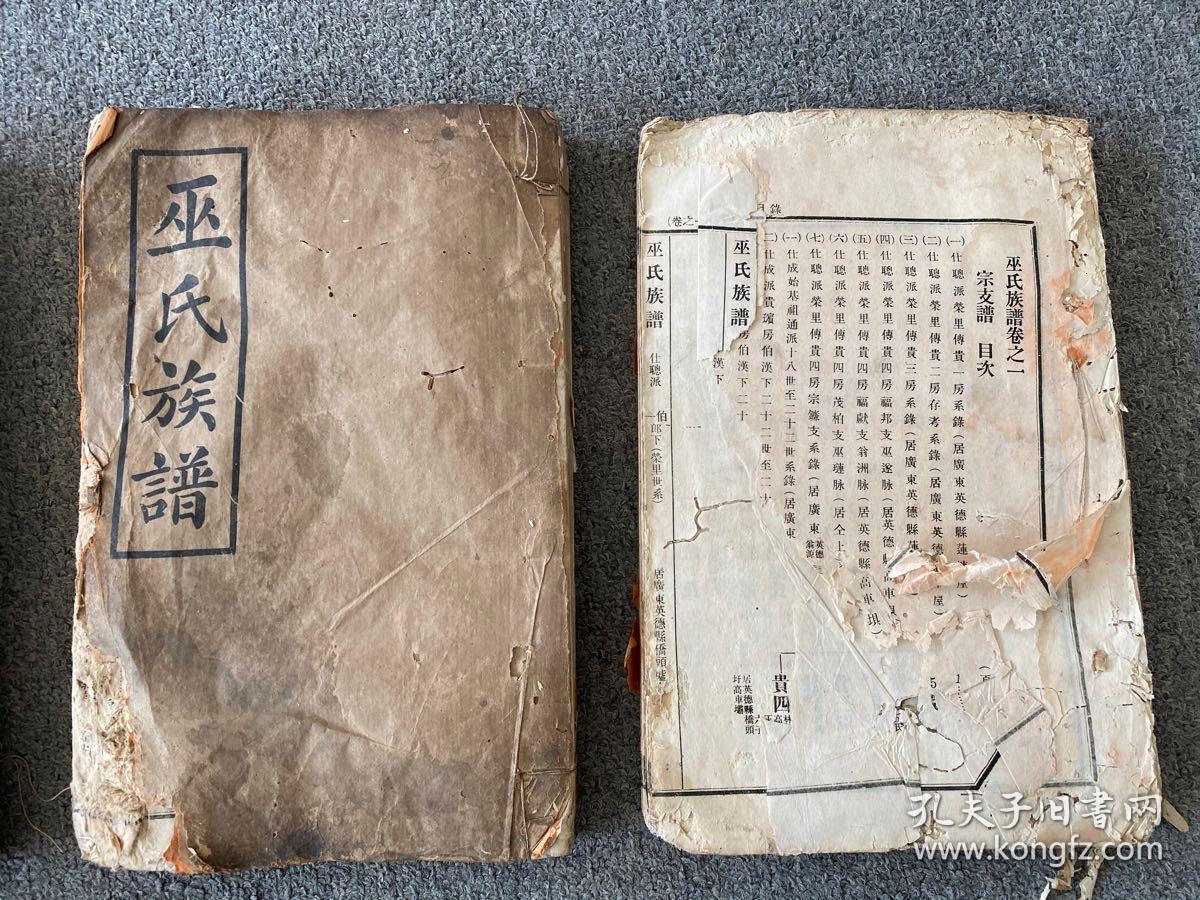 巫氏族譜
巫氏族譜卷之一
宗支譜 目次
(一)仕聰派榮里傳貴一房系錄(居廣東英德縣蓮
屋)
(二)仕聰派榮里傳貴二房存考系錄(居廣東英德
屋)
(三)仕聰派榮里傳貴三房系錄(居廣東英德縣蓮
(四)仕聰派榮里傳貴四房福邦支巫遂脉(居英德縣高車
(五)仕聰派榮里傳貴四房福獻支翁洲脉(居英德縣高車埧)
(六)仕聰派榮里傳貴四房茂柏支巫璉脉(居仝上
(七)仕聰派榮里傳貴四房宗鎌支系錄(居廣東英德翁源
(一)仕成始基祖通派十八世至二十二世系錄(居廣東
二)仕成派貴瓆房伯漢下二十二世至二十
房伯漢下二十
漢下
巫氏族譜
錄
(卷之一
巫氏族譜
仕聰派
伯一郎下(榮里世系)
居廣東英德縣橋頭墟
貴四
居英德縣橋頭
圩高車壩
孔夫子旧書网
www.kongfz.com